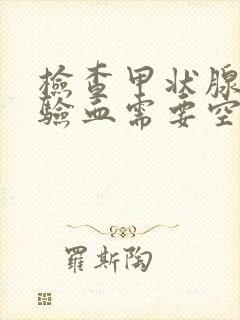 檢查甲状腺
驗血需要空
羅斯陶